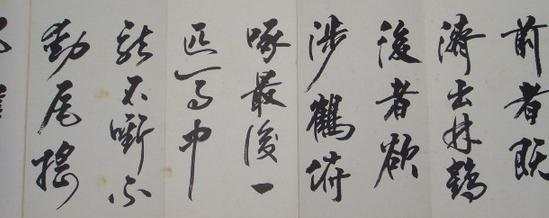 前者既
濟出林鶴
後者欲
涉鶴俯
啄最後一
匹馬中
龍不嘶不
動尾搖